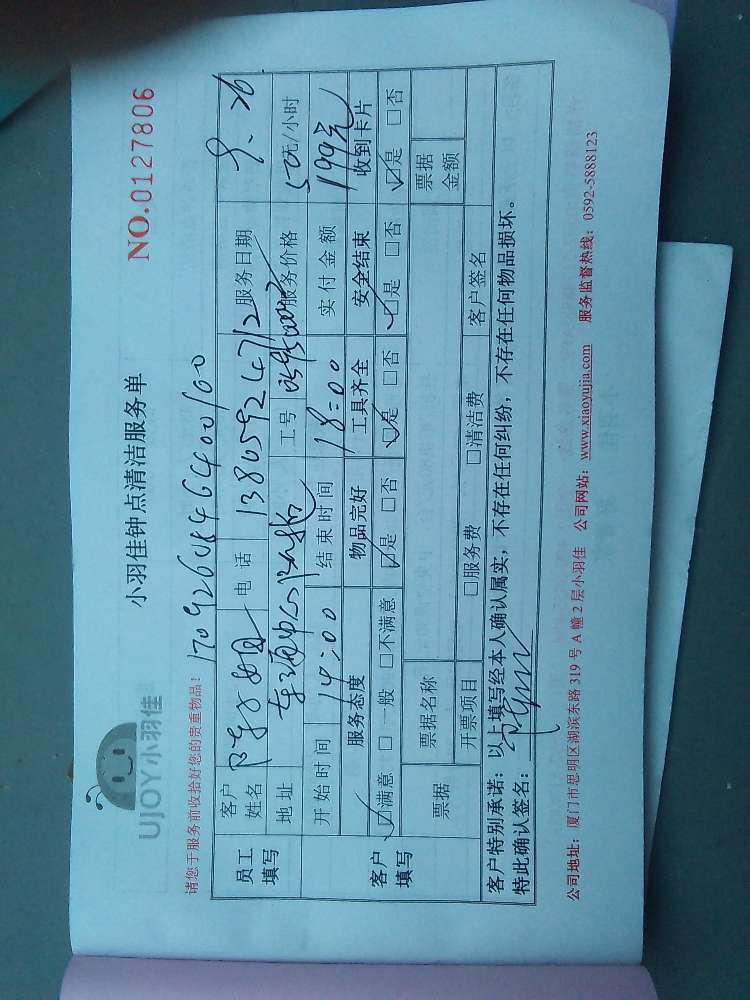 UJOY小羽佳
小羽佳钟点清洁服务单
NO.0127806
请您于服务前收拾好您的贵重物品!
员工填写
客户姓名 小姐 电话 13805924712 服务日期 9.26
地址 工号 服务价格 50元/小时
开始时间 14:00 结束时间 18:00 实付金额 199元
客户填写
服务态度 物品完好 工具齐全 安全结束 收到卡片
☑满意 □一般 □不满意 ☑是 □否 ☑是 □否 ☑是 □否 ☑是 □否
票据 票据名称 票据金额
开票项目 □服务费 □清洁费 客户签名
客户特别承诺:以上填写经本人确认属实,不存在任何纠纷,不存在任何物品损坏。
特此确认签名:
公司地址:厦门市思明区湖滨东路319号A幢2层小羽佳 公司网站:www.xiaoyujia.com 服务监督热线:0592-5888123